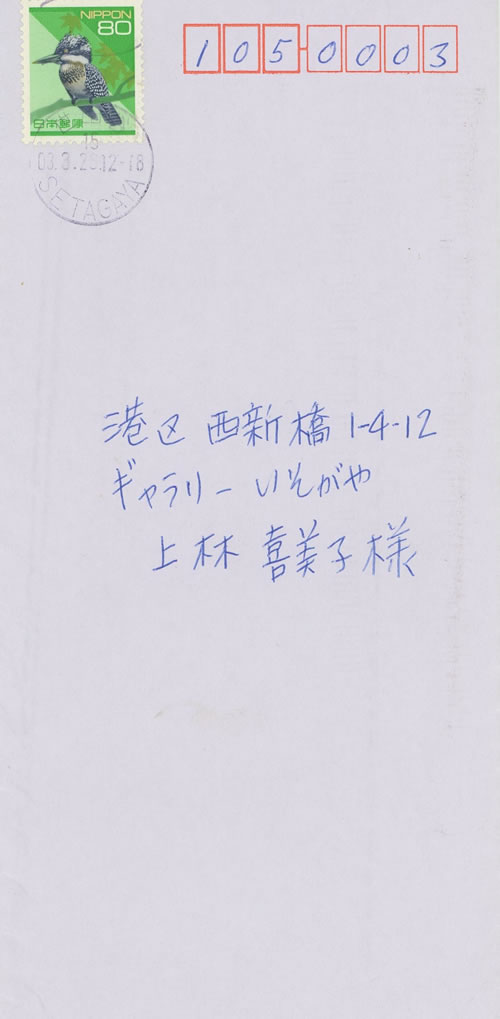 NIPPON
80
日本郵便
1050003
15
03.3.26.12-18
SETAGAYA
港区 西新橋 1-4-12
ギャラリー いそがや
上林 喜美子様